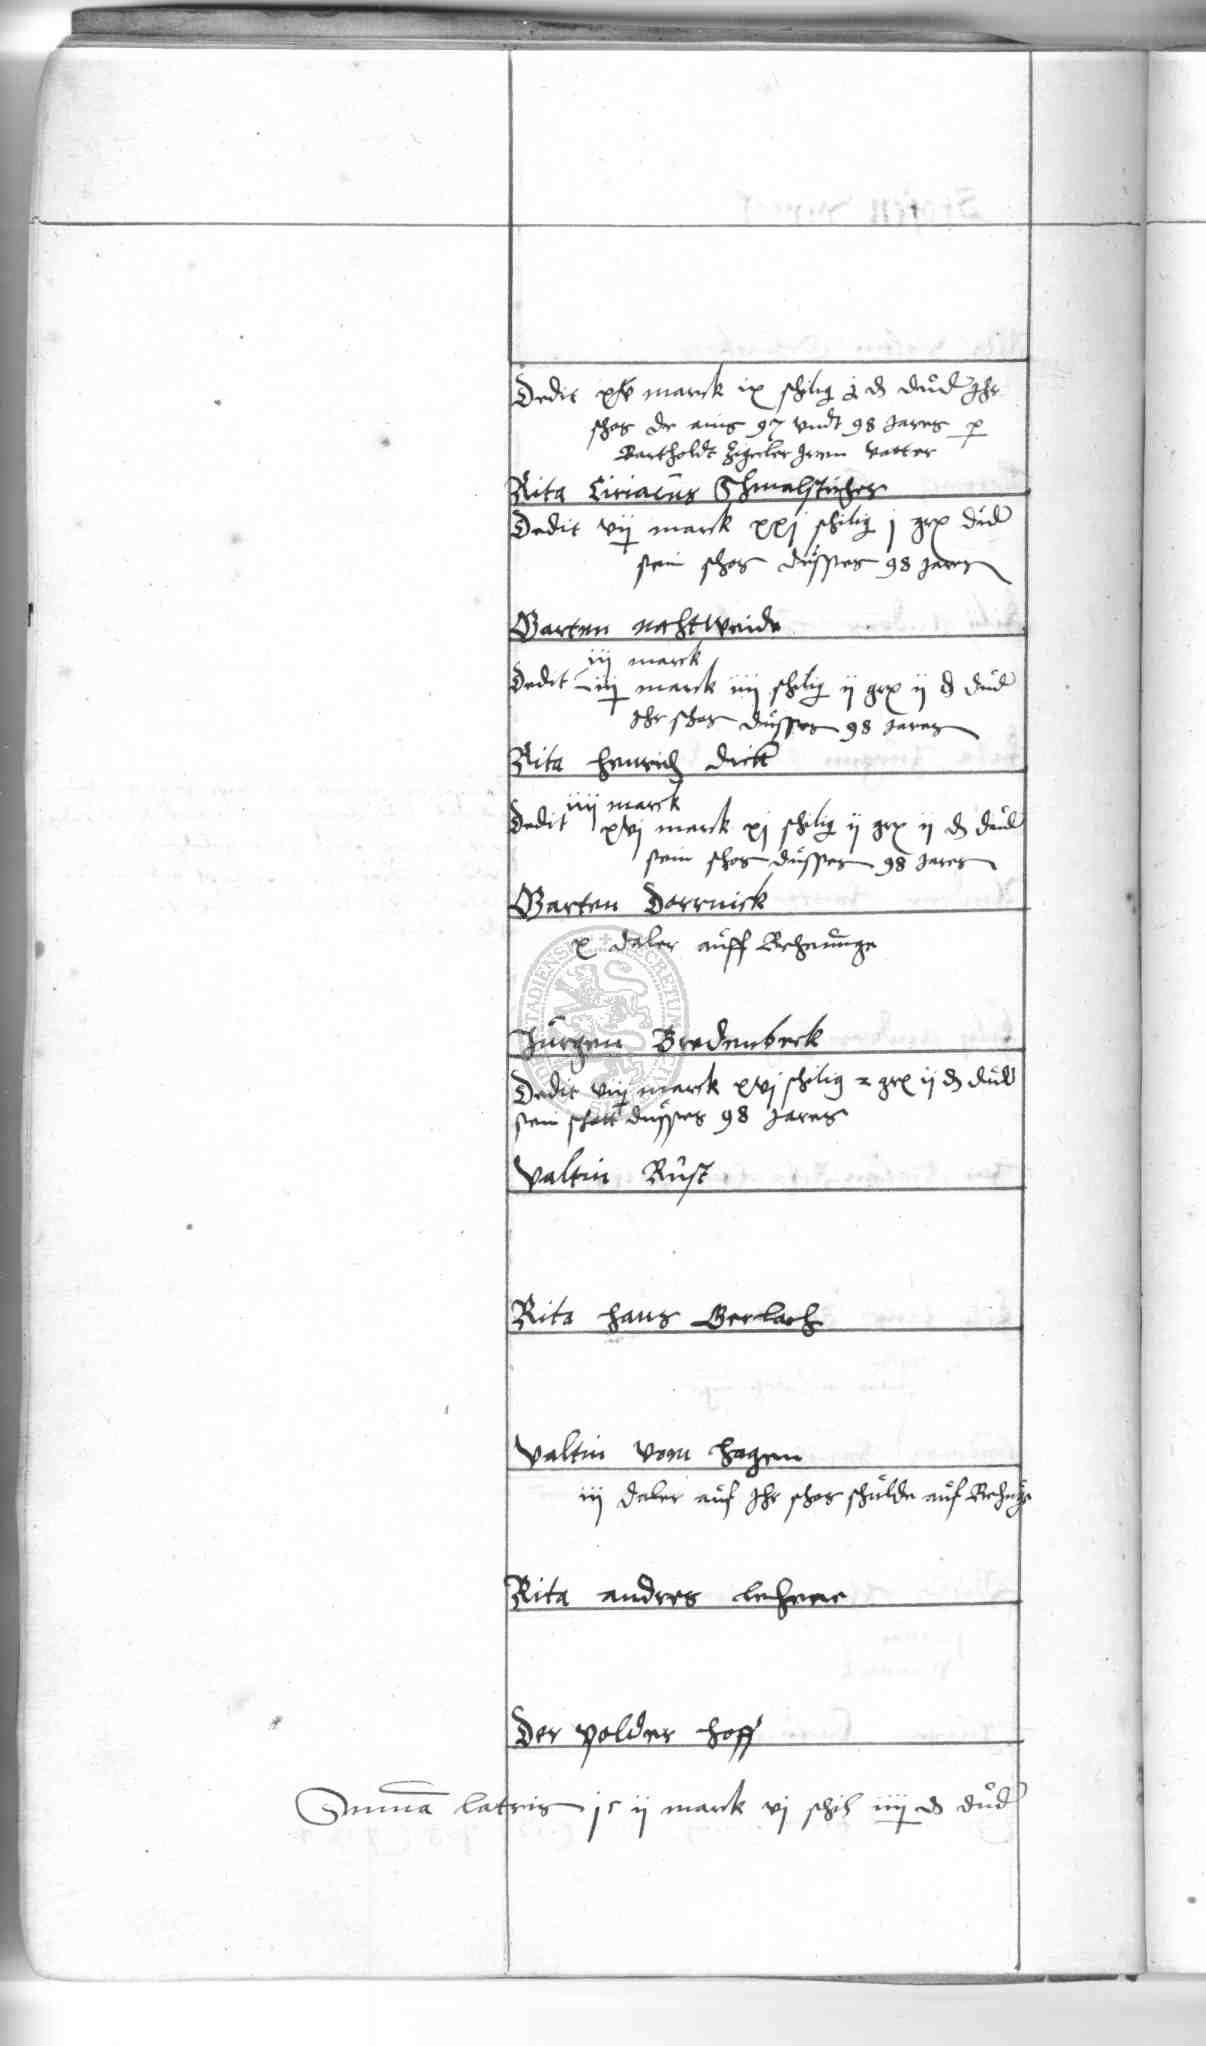 Dedit xv marck ix schilig j d dud Ihr
schos de anis 97 undt 98 Jares p
Bartholdt Zigeler Irem vatter
Rita Ciriacus Schmalstiches
Dedit vij marck xxj schilig j grx dud
sein schos dusses 98 Jares
Garten nachtweide
iij marck
Dedit iij marck iiij schilig ij grx ij d dud
Ihr schos dusses 98 Jares
Rita henrich dick
iiij marck
Dedit xvj marck xj schilig ij grx ij d dud
sein schos dusses 98 Jares
Garten Dornick
x daler auff Rechnunge
Jurgen Bredenbeck
Dedit viij marck xvj schilig 2 grx ij d dud
sein schott dusses 98 Jares
Valtin Rust
Rita hans Gerlach
Valtin vom hagen
iij daler auf Ihr schos schulde auf
Rita andres
Der polder hoff
Summa lateris jc ij marck vj schil iiij d dud